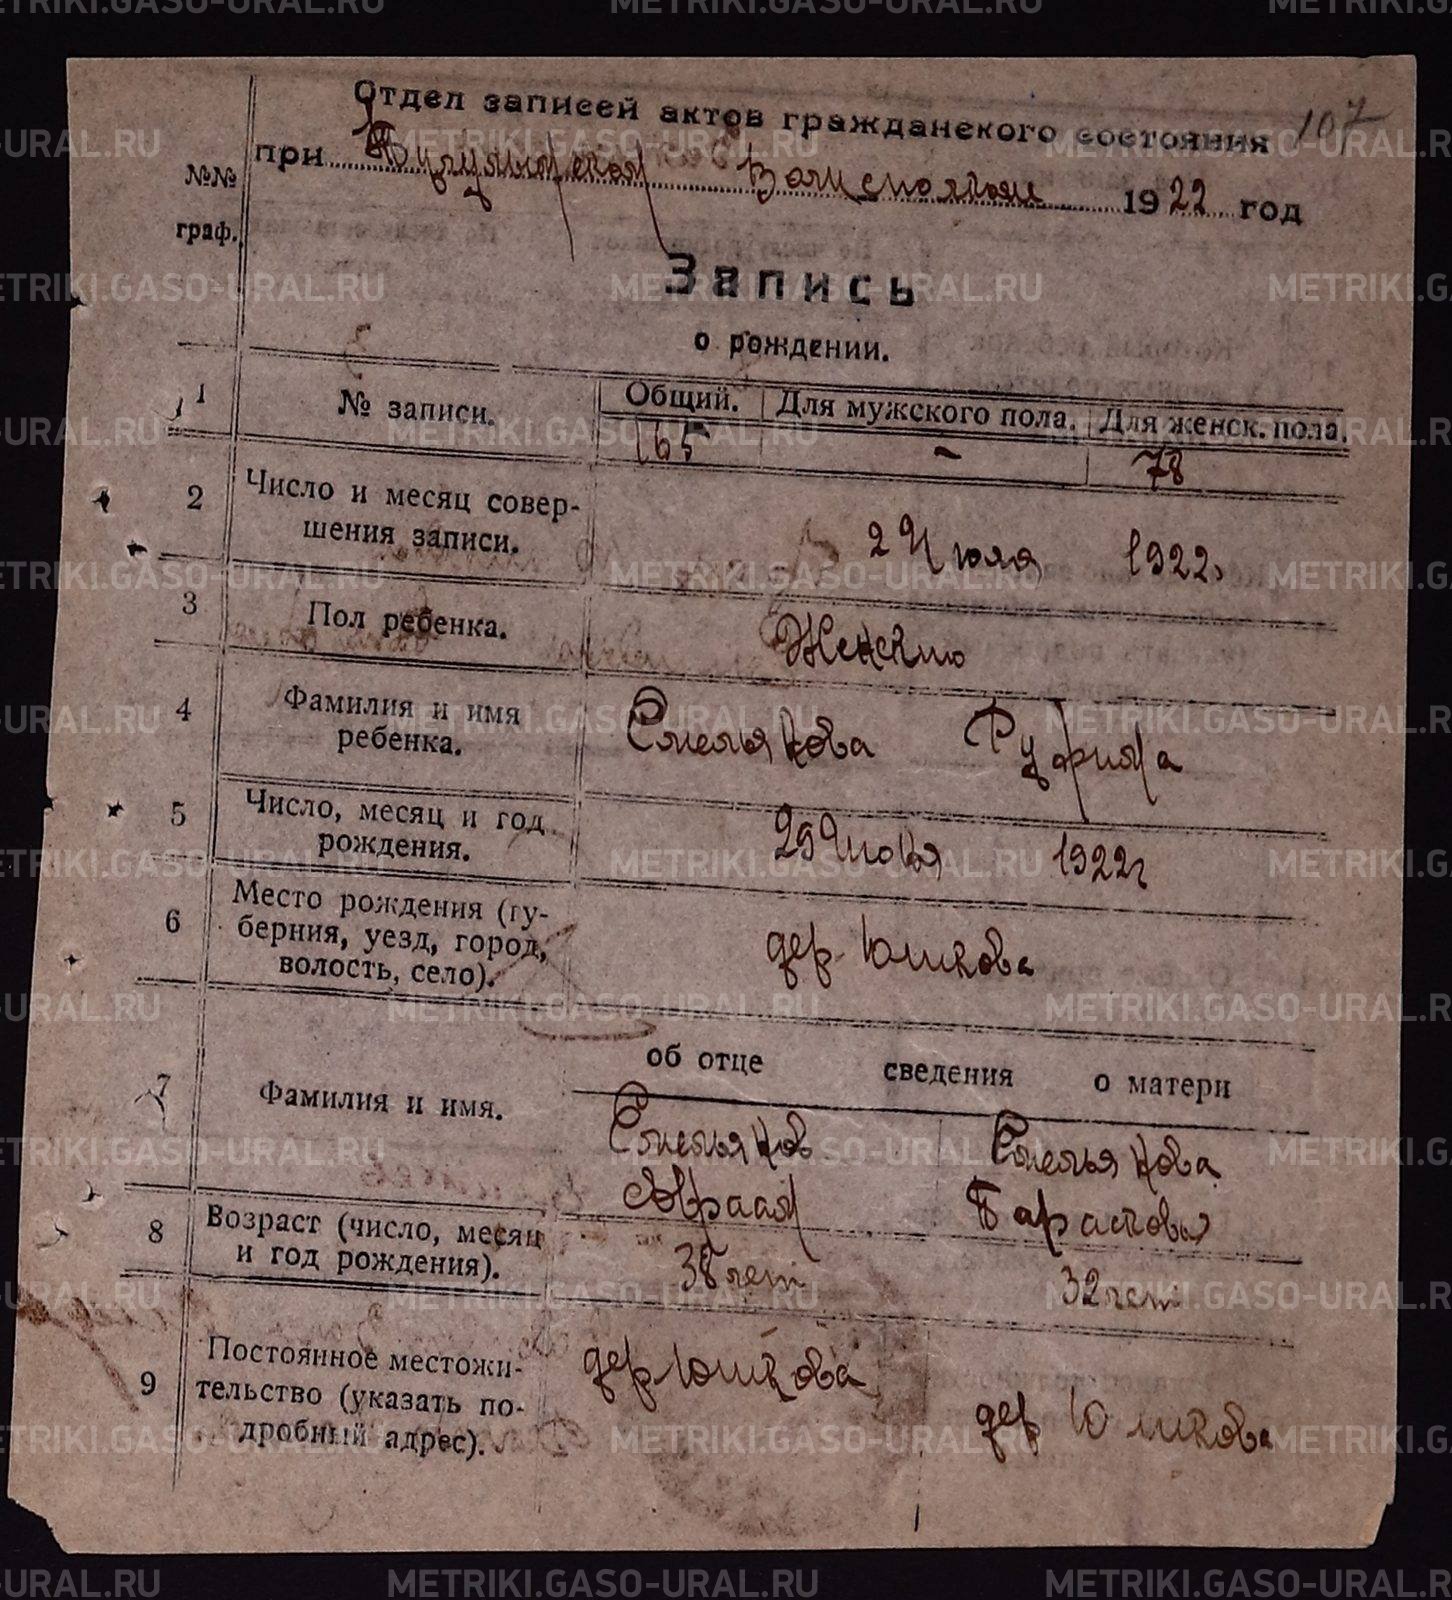 107
Отдел записей актов гражданского состояния
при Волисполком 1922 год
№№
граф.
Запись
о рождении.
1 № записи. Общий. Для мужского пола. Для женск. пола.
165 - 78
2 Число и месяц совер-
шения записи.
2 Июля 1922г
3 Пол ребенка. Женскию
4 Фамилия и имя
ребенка.
Смельякова Руфина
5 Число, месяц и год
рождения.
29 Июня 1922г
6 Место рождения (гу-
берния, уезд, город,
волость, село).
дер Юшкова
об отце сведения о матери
7 Фамилия и имя.
Смельяков Смельякова
Авраам Парасковья
8 Возраст (число, месяц
и год рождения).
38 лет 32 лет
9 Постоянное местожи-
тельство (указать по-
дробный адрес).
дер Юшкова дер Юшкова
METRIKI.GASO-URAL.RU